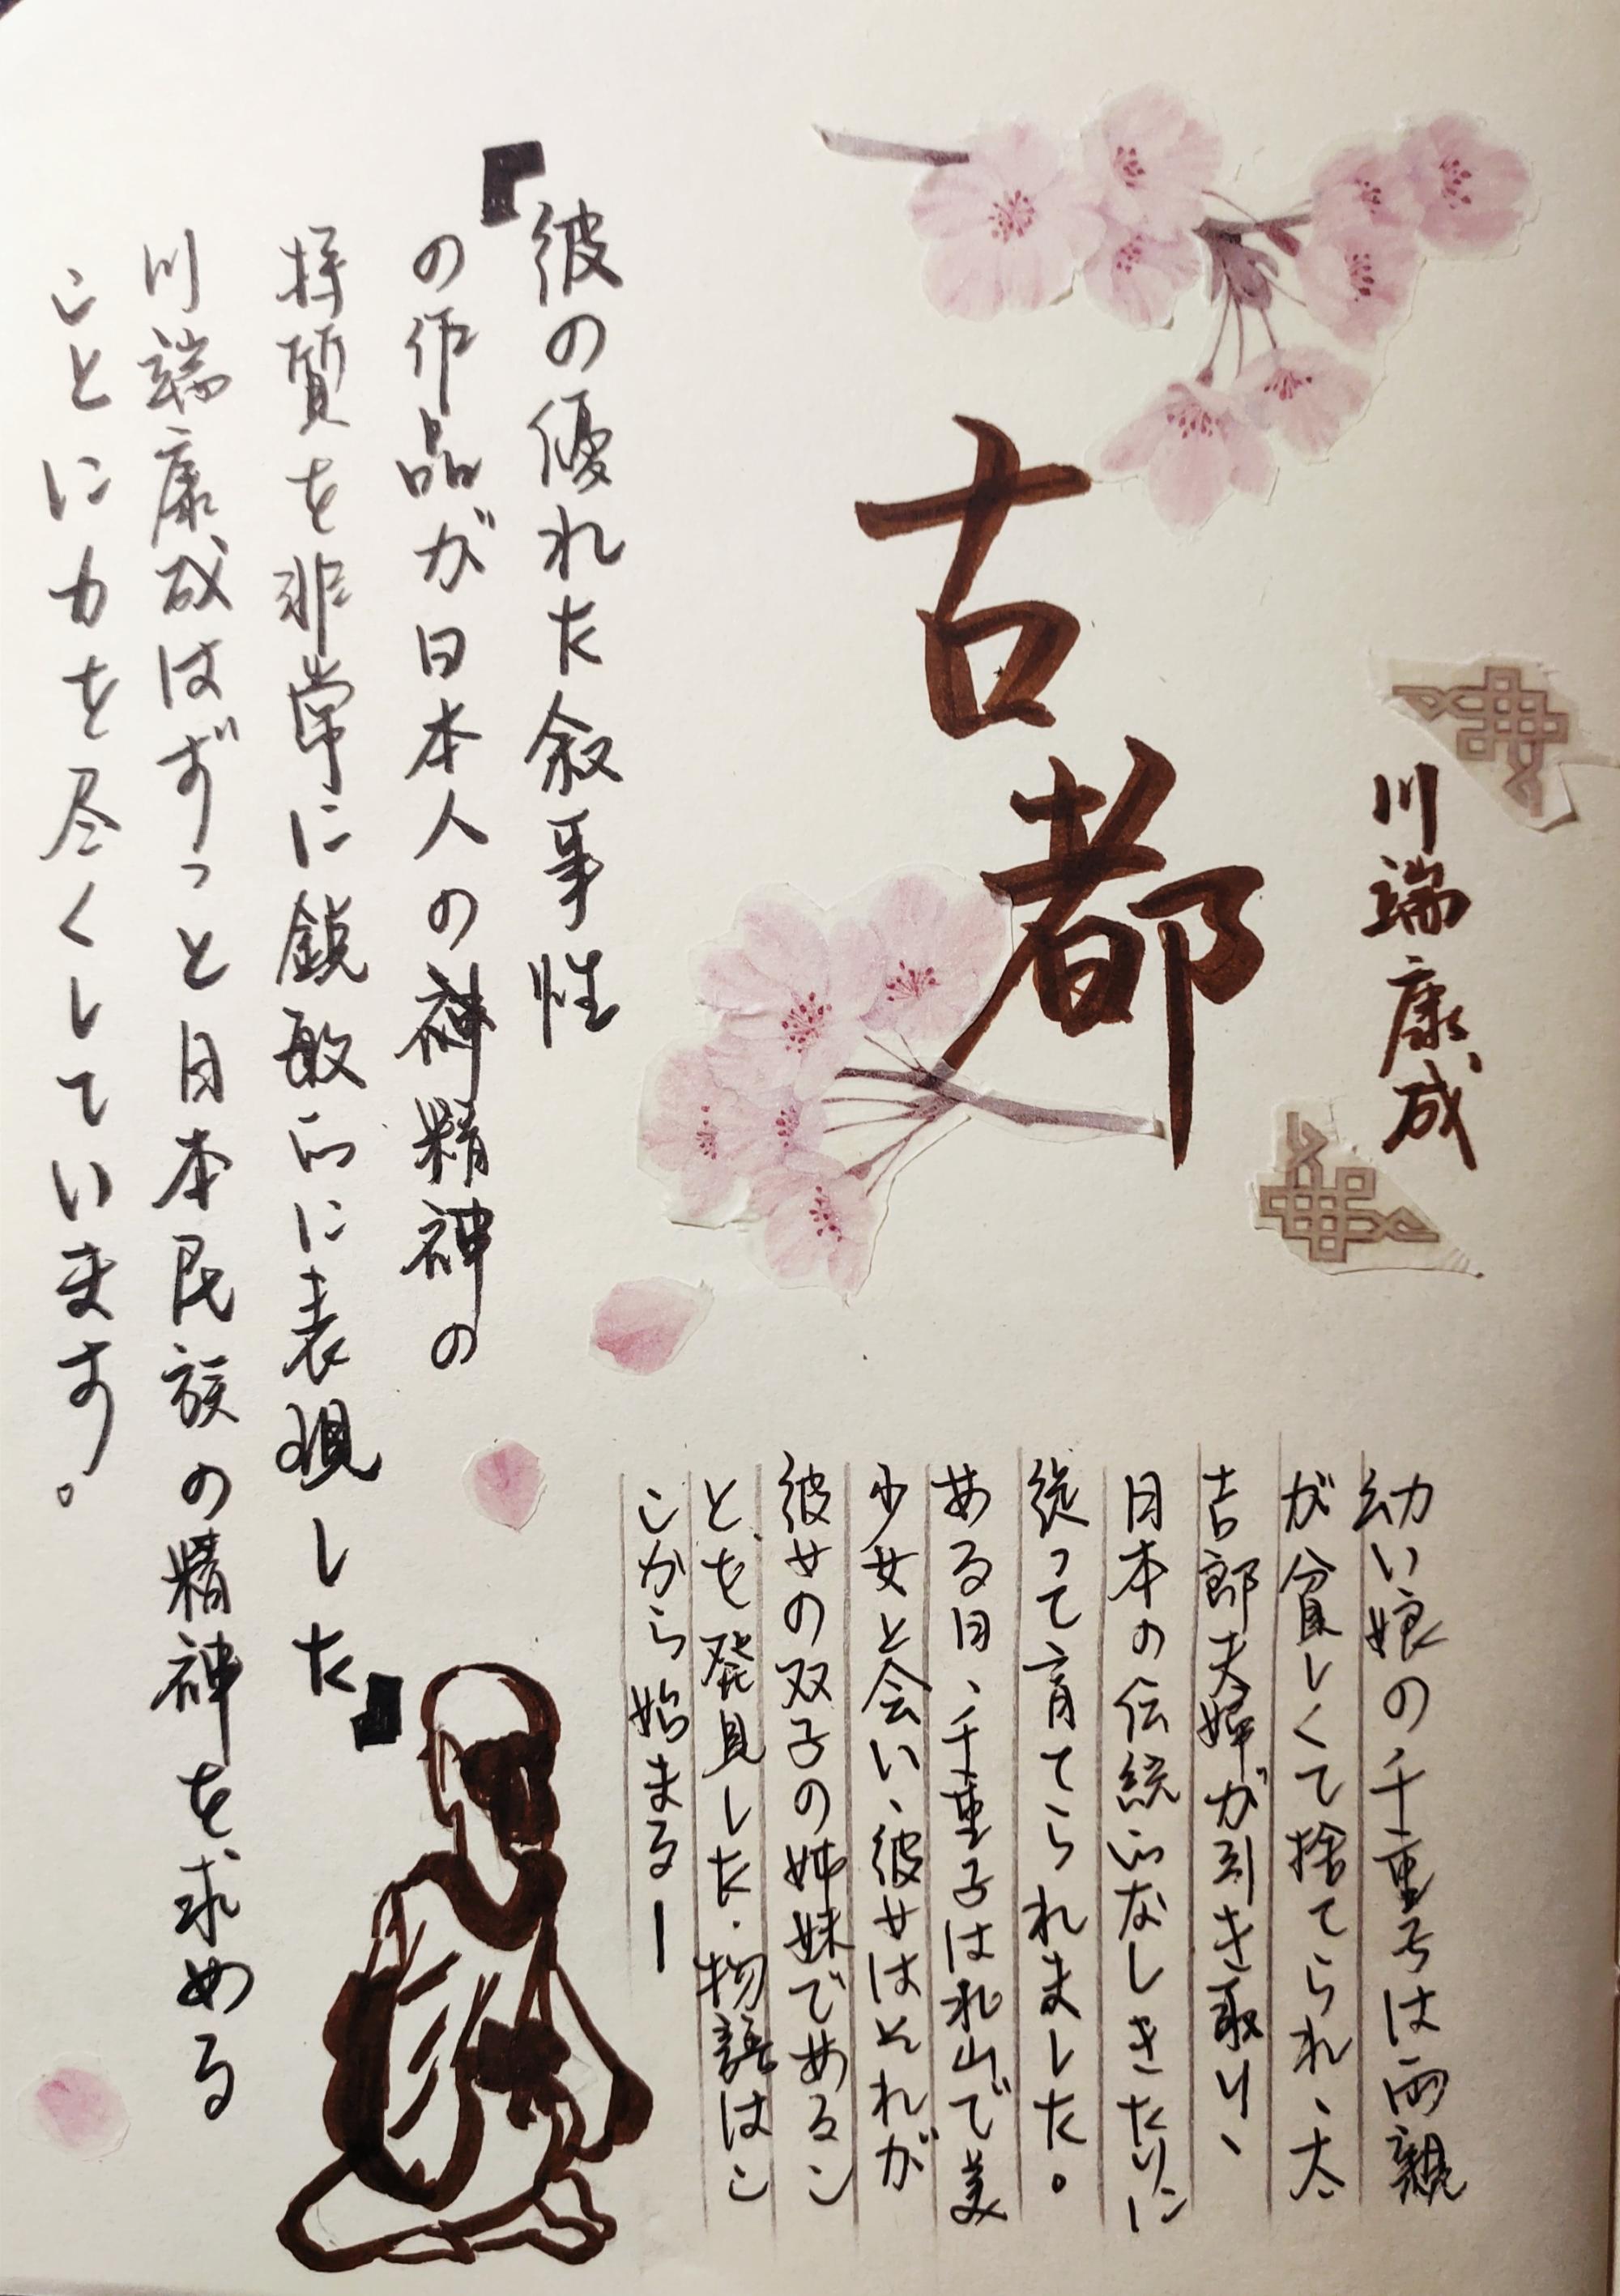 古都
川端康成
幼い娘の千重子は両親
が貧しくて捨てられ、太
吉郎夫婦が引き取り、
日本の伝統的なしきたりに
従って育てられました。
ある日、千重子は北山で美
少女と会い、彼女はそれが
彼女の双子の姉妹であるこ
とを発見した.物語はこ
こから始まるー
『彼の優れた叙事性
の作品が日本人の神精神の
持質を非常に鋭敏的に表現した』
川端康成はずっと日本民族の精神を求める
ことに力を尽くしています。